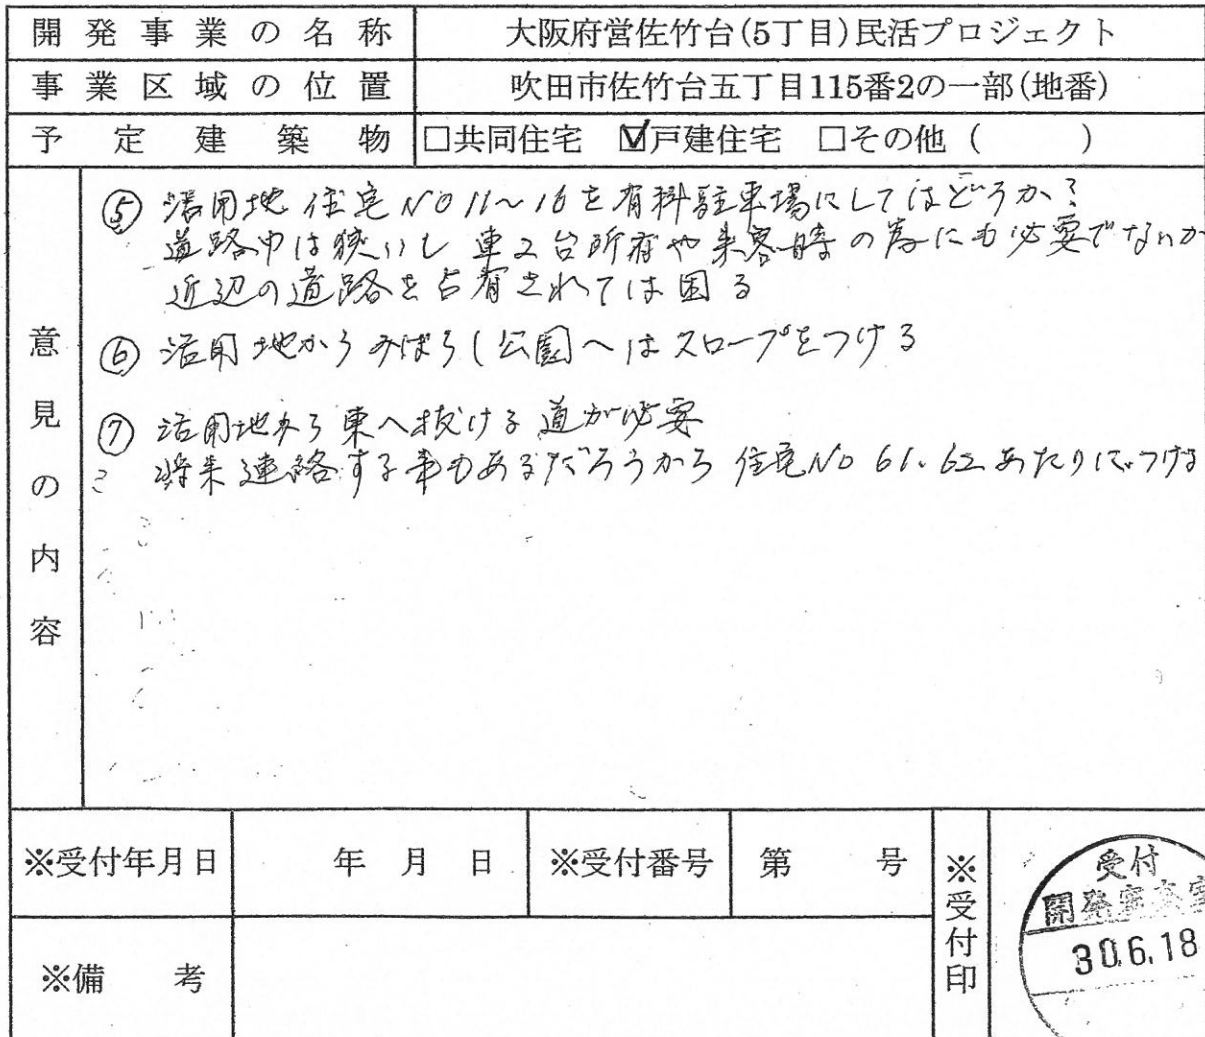 開発事業の名称 大阪府営佐竹台(5丁目)民活プロジェクト
事業区域の位置 吹田市佐竹台五丁目115番2の一部(地番)
予定建築物 □共同住宅 ☑戸建住宅 □その他( )
意見の内容
⑤ 活用地 住宅NO 11~16を有料駐車場にしてはどうか?
道路巾は狭いし 車2台所有や来客時の為にも必要でないか
近辺の道路を占有されては困る
⑥ 活用地からみはらし公園へはスロープをつける
⑦ 活用地から東へ抜ける道が必要
将来連絡する事もあるだろうから 住宅No 61.62あたりにつける
※受付年月日 年 月 日 ※受付番号 第 号 ※受付印
受付
開発審査室
30.6.18
※備考